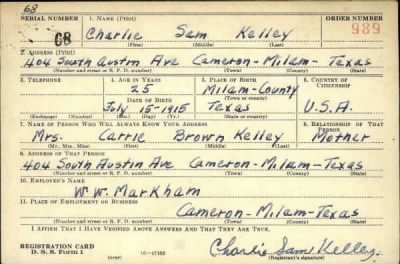 68
SERIAL NUMBER 1. NAME (Print) ORDER NUMBER
68 Charlie Sam Kelley 989
(First) (Middle) (Last)
2. ADDRESS (Print)
404 South Austin Ave Cameron-Milam-Texas
(Number and street or R. F. D. number) (Town) (County) (State)
3. TELEPHONE 4. AGE IN YEARS 5. PLACE OF BIRTH 6. COUNTRY OF CITIZENSHIP
25 Milam-County
(Town or county)
DATE OF BIRTH
July 15-1915 Texas U.S.A.
(Exchange) (Number) (Mo.) (Day) (Yr.) (State or country)
7. NAME OF PERSON WHO WILL ALWAYS KNOW YOUR ADDRESS 8. RELATIONSHIP OF THAT PERSON
Mrs. Carrie Brown Kelley Mother
(Mr., Mrs., Miss) (First) (Middle) (Last)
9. ADDRESS OF THAT PERSON
404 South Austin Ave Cameron-Milam-Texas
(Number and street or R. F. D. number) (Town) (County) (State)
10. EMPLOYER'S NAME
W. W. Markham
11. PLACE OF EMPLOYMENT OR BUSINESS
Cameron-Milam-Texas
(Number and street or R. F. D. number) (Town) (County) (State)
I AFFIRM THAT I HAVE VERIFIED ABOVE ANSWERS AND THAT THEY ARE TRUE.
REGISTRATION CARD
D. S. S. Form 1 (over) Charlie Sam Kelley.
(Registrant's signature)